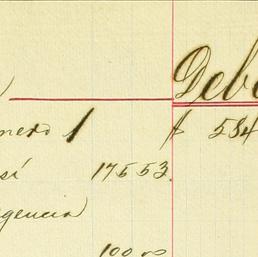 Debe
nero 1 $ 534
sí 17553.
gencia
100 00